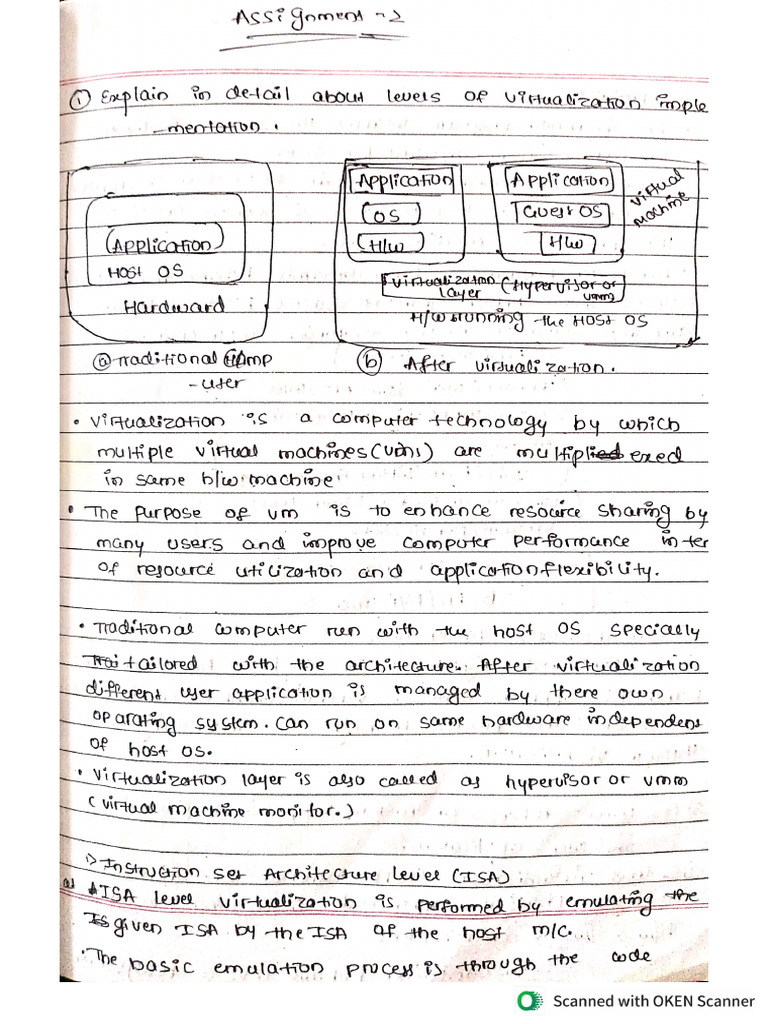 Assignment -2
① Explain in detail about levels of virtualization imple
-mentation.
Application
Host OS
Hardware
Application
OS
H/W
Application
Guest OS
H/W
virtual machine
virtualization layer (Hypervisor or vmm)
H/W running the Host OS
ⓐ Traditional comp
-uter
ⓑ After virtualization.
• virtualization is a computer technology by which
multiple virtual machines (VMs) are multiplexed
in same h/w machine
• The purpose of vm is to enhance resource sharing by
many users and improve computer performance in ter
of resource utilization and application flexibility.
• Traditional computer run with the host OS specially
tailored with the architecture. After virtualization
different user application is managed by there own
oparating system. can run on same hardware independent
of host os.
• virtualization layer is also called as hypervisor or vmm
(virtual machine monitor.)
1) Instruction set Architecture Level (ISA)
a) ISA level virtualization is performed by emulating the
given ISA by the ISA of the host m/c.
• The basic emulation process is through the code
Scanned with OKEN Scanner